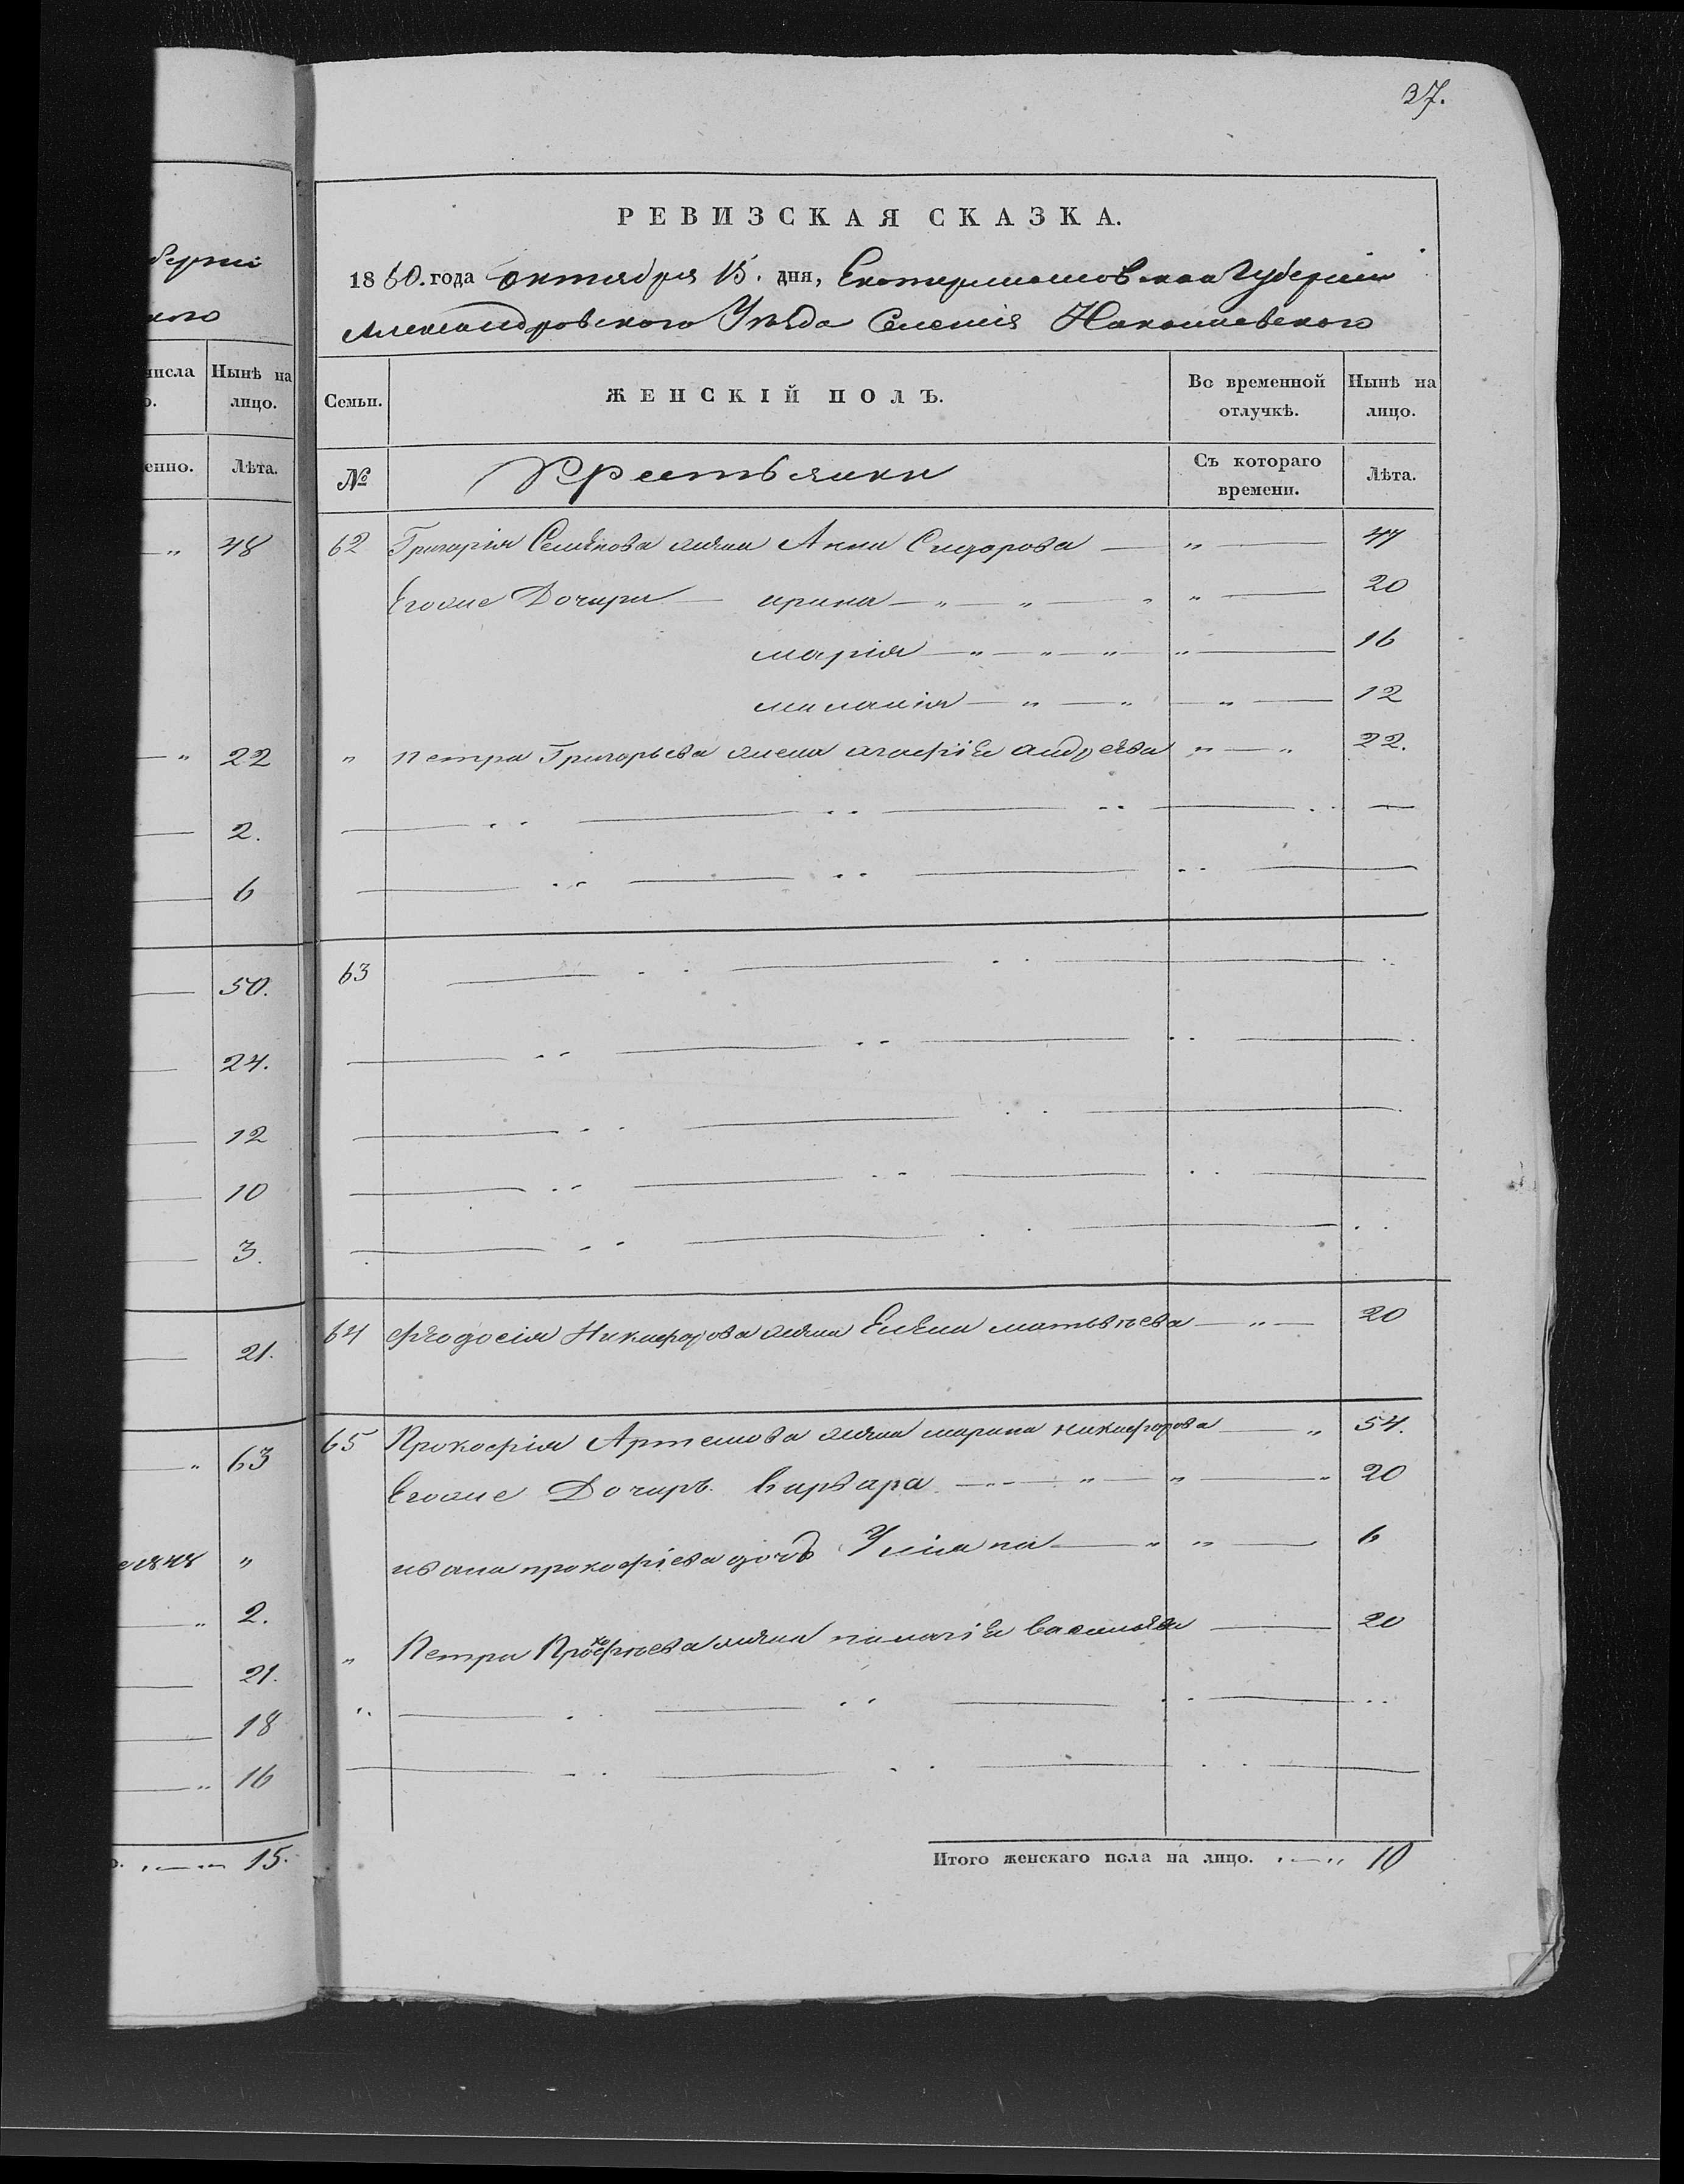 37.
берніи
кого
числа
Нынѣ на
о.
лицо.
енно.
Лѣта.
„ 48
„ 22
2.
6
50.
24.
12
10
3.
21.
„ 63
„
„ 2.
21.
18
„ 16
о. 15.
РЕВИЗСКАЯ СКАЗКА.
1860. года октября 15. дня, Екатеринославская Губернии
Александровского Уѣзда Селенія
Семьи. ЖЕНСКІЙ ПОЛЪ. Во временной отлучкѣ. Нынѣ на лицо.
№ Крестьянки Съ котораго времени. Лѣта.
62 Григорія Семѣнова жѣна Анна Сидорова „ 47
Егоже Дочири ирина „ „ „ „ 20
марія „ „ „ „ 16
миланія „ „ „ 12
„ петра Григорьева жена агафіѣ андрѣева „ „ 22.
63
64 Фѣодосія Никифорова жѣна Елѣна матвѣева „ 20
65 Прокофія Артемова жѣна марина никифорова „ 54.
Егоже Дочирь Варвара „ „ „ 20
ивана прокофіева дочь Уліана „ „ 6
„ Петра Прокофіева жѣна палагіѣ василѣва 20
Итого женскаго пола на лицо. 10